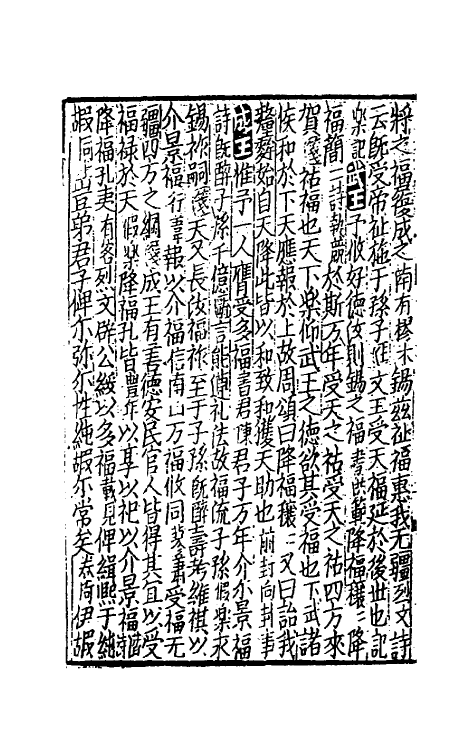 將之福履成之南有樛木錫茲祉福惠我无疆烈文詩
云既受帝祉施于孫子維文王受天福延於後世也記
樂記武王予攸好德汝則錫之福書洪範降福穰二降
福簡二詩執競於斯万年受天之祜受天之祜四方來
賀箋祜福也天下樂仰武王之德欲其受福也下武諸
侯和於下天應報於上故周頌曰降福穰二又曰詒我
釐麰始自天降此皆以和致和獲天助也前封向封事
成王惟予一人膺受多福書君陳君子万年介尒景福
詩既醉子孫千億箋言能遵礼法故福流子孫假樂永
錫祚嗣箋天又長汝福祚至于子孫既醉壽考維祺以
介景福行葦報以介福信南山万福攸同蓼蕭受福无
疆四方之綱箋成王有善德安民官人皆得其宜以受
福禄於天假樂降福孔皆豐年以享以祀以介景福詩潛
降福孔夷有客烈文辟公綏以多福載見俾緝熙于純
嘏同上豈弟君子俾尒弥尒性純嘏尒常矣卷阿伊嘏